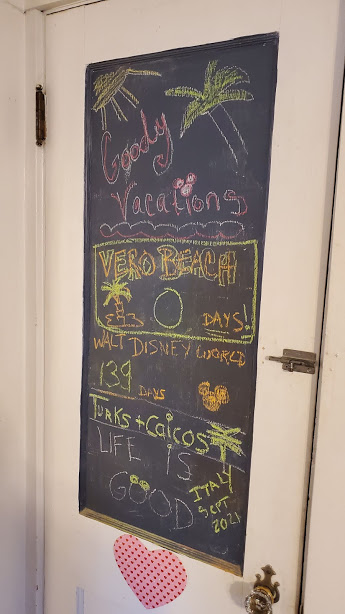 Goody
Vacations
VERO BEACH
0 DAYS!
WALT DISNEY WORLD
139 DAYS
TURKS + CAICOS
LIFE IS
GOOD
ITALY
SEPT
2021